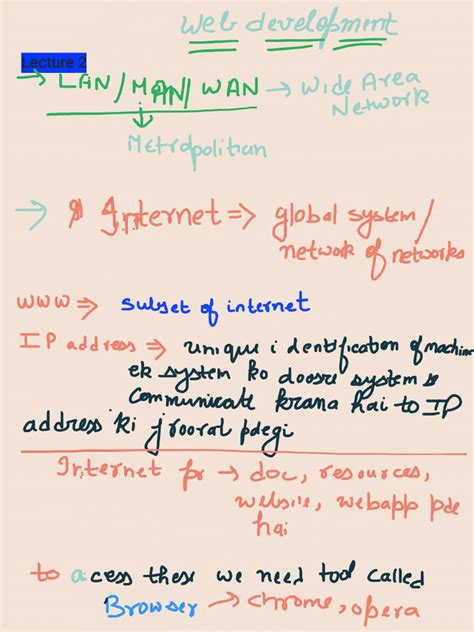 Web development
Lecture 2
→ LAN/MAN/WAN → Wide Area
Network
Metropolitian
→ Internet ⇒ global system/
network of networks
WWW ⇒ subset of internet
IP address ⇒ unique identification of machine
ek system ko doosre system se
communicate krana hai to IP
address ki jroorat pdegi
Internet pr → doc, resources,
website, webapp pde
hai
to access these we need tool called
Browser → chrome, opera